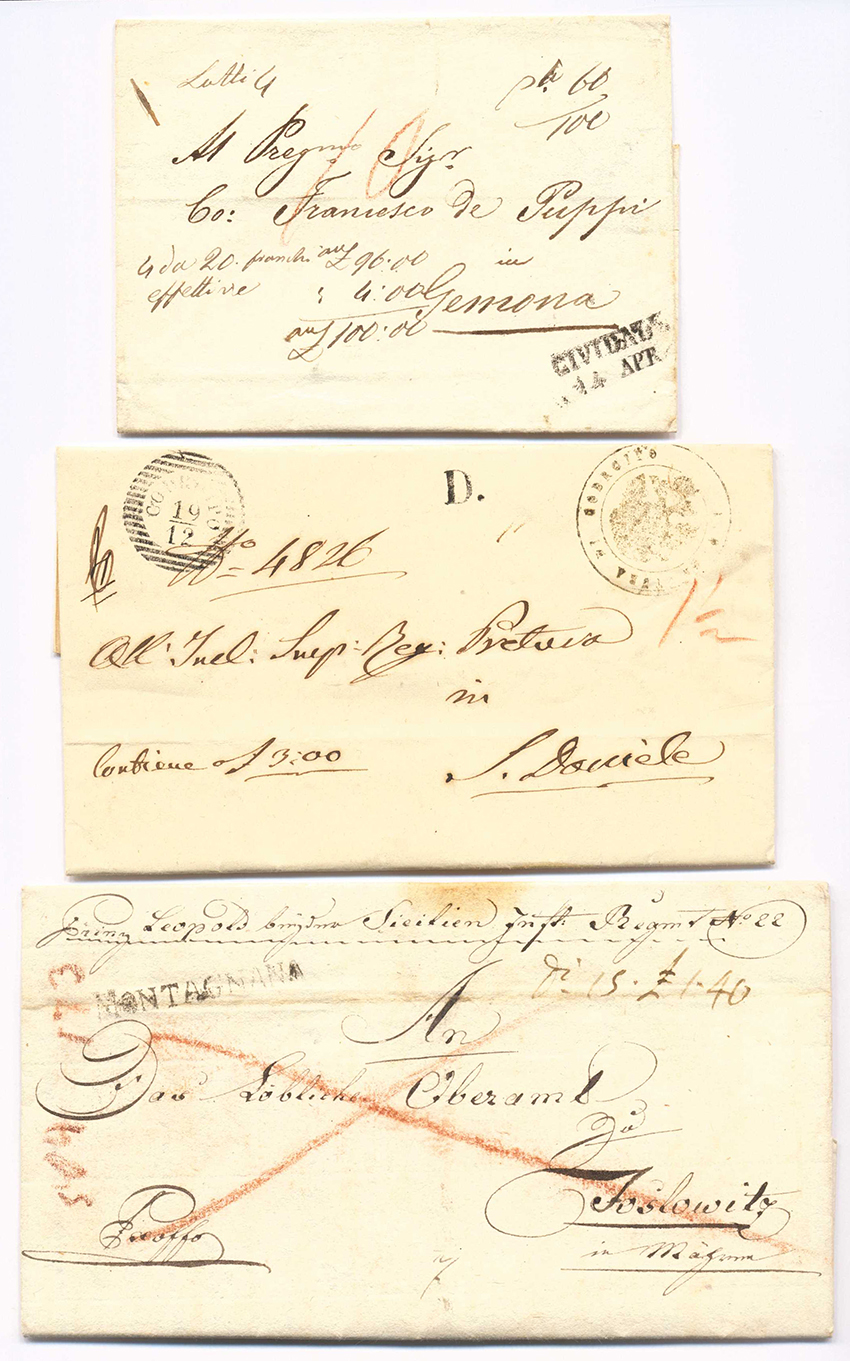 Lotti 4
60
100
10
Al Pregmo Sigr
Co: Francesco de Puppi
4 da 20 franchi £ 96:00
in
effettive : 4:00
Gemona
£ 100:00
CIVIDALE
14 APR
CODROIPO
19
12
D.
No 4826
1/2
All' Incl: Reg: Pretura
in
Contiene 3:00
S. Daniele
Prinz Leopold beyder Sicilien Inft: Regmt No 22
MONTAGNANA
15 £ 1.40
An
Das Löbliche Oberamt
zu
Joslowitz
in Mähren